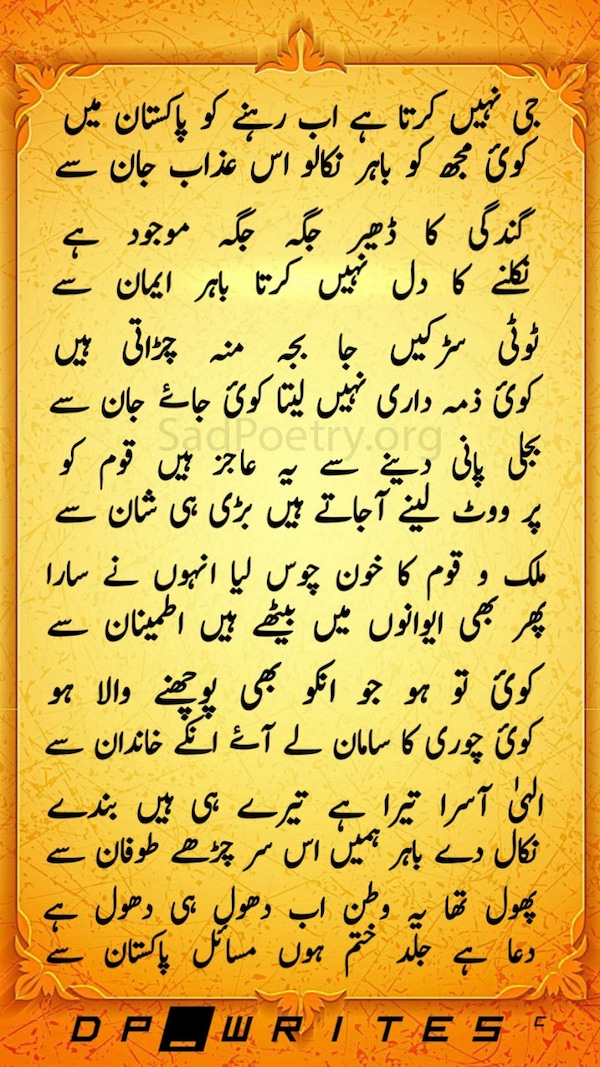 جی نہیں کرتا ہے اب رہنے کو پاکستان میں
کوئ مجھ کو باہر نکالو اس عذاب جان سے
گندگی کا ڈھیر جگہ جگہ موجود ہے
نکلنے کا دل نہیں کرتا باہر ایمان سے
ٹوٹی سڑکیں جا بجہ منہ چڑاتی ہیں
کوئ ذمہ داری نہیں لیتا کوئ جاۓ جان سے
SadPoetry.org
بجلی پانی دینے سے یہ عاجز ہیں قوم کو
پر ووٹ لینے آجاتے ہیں بڑی ہی شان سے
ملک و قوم کا خون چوس لیا انہوں نے سارا
پھر بھی ایوانوں میں بیٹھے ہیں اطمینان سے
کوئ تو ہو جو انکو بھی پوچھنے والا ہو
کوئ چوری کا سامان لے آۓ انکے خاندان سے
الہیٰ آسرا تیرا ہے تیرے ہی ہیں بندے
نکال دے باہر ہمیں اس سر چڑھے طوفان سے
پھول تھا یہ وطن اب دھول ہی دھول ہے
دعا ہے جلد ختم ہوں مسائل پاکستان سے
DP_WRITES c